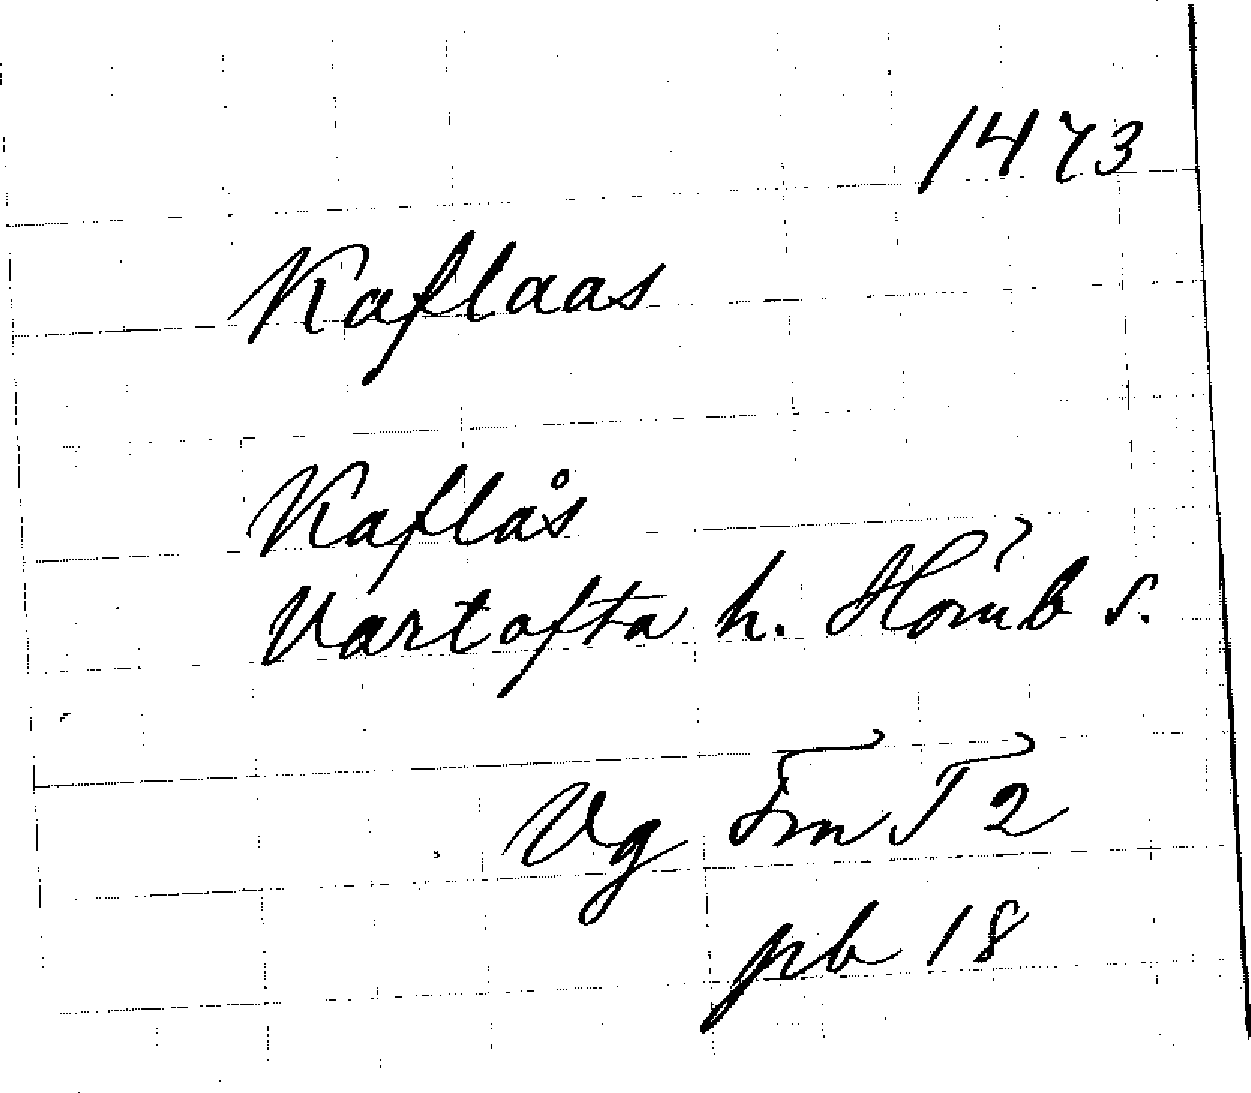 1473
Kaflaas
Kaflås
Vartofta h. Hömb s.
Vg Fm T 2
pb 18